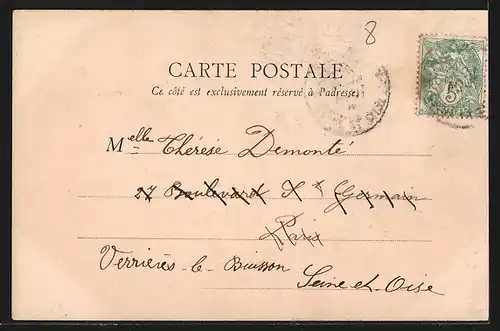 8
CARTE POSTALE
Ce côté est exclusivement réservé à l'adresse.
Melle Thérèse Demonté
27 Boulevard St Germain
Paris
Verrières-le-Buisson
Seine-et-Oise
5